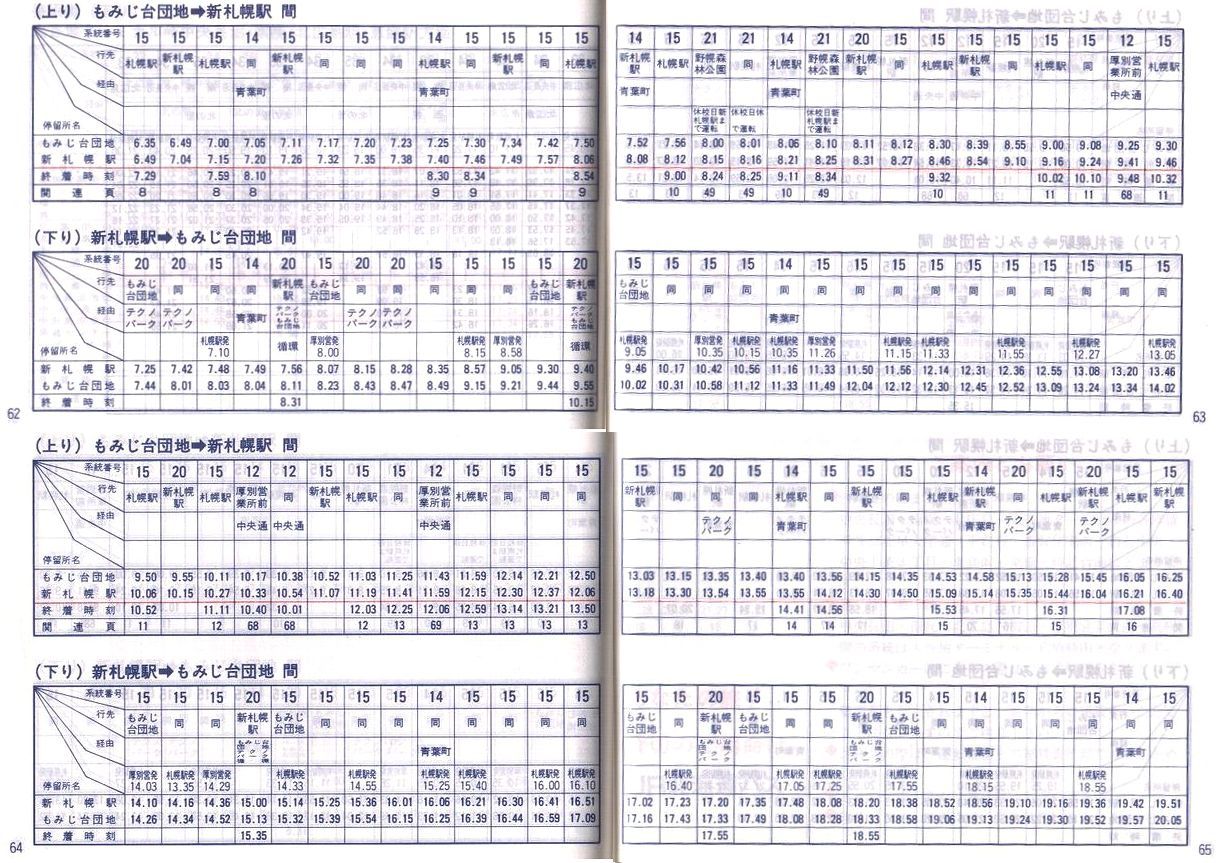 (上り) もみじ台団地➡新札幌駅 間
系統番号 15 15 15 14 15 15 15 15 14 15 15 15 15
行先 札幌駅 新札幌駅 札幌駅 同 新札幌駅 同 同 同 札幌駅 同 新札幌駅 同 札幌駅
経由 青葉町 青葉町
停留所名
もみじ台団地 6.35 6.49 7.00 7.05 7.11 7.17 7.20 7.23 7.25 7.30 7.34 7.42 7.50
新札幌駅 6.49 7.04 7.15 7.20 7.26 7.32 7.35 7.38 7.40 7.46 7.49 7.57 8.06
終着時刻 7.29 7.59 8.10 8.30 8.34 8.54
関連頁 8 8 8 9 9 9
(下り) 新札幌駅➡もみじ台団地 間
系統番号 20 20 15 14 20 15 20 20 15 15 15 20
行先 もみじ台団地 同 同 同 新札幌駅 もみじ台団地 同 同 同 同 もみじ台団地 新札幌駅
経由 テクノパーク テクノパーク 青葉町 テクノパークもみじ台団地 テクノパーク テクノパーク
停留所名 札幌駅発7.10 循環 厚別営発8.00 札幌駅発8.15 厚別営発8.58 循環
新札幌駅 7.25 7.42 7.48 7.49 7.56 8.07 8.15 8.28 8.35 8.57 9.05 9.30 9.40
もみじ台団地 7.44 8.01 8.03 8.04 8.11 8.23 8.43 8.47 8.49 9.15 9.21 9.44 9.55
終着時刻 8.31 10.15
62
14 15 21 21 14 21 20 15 15 15 15 15 15 12 15
新札幌駅 札幌駅 野幌森林公園 同 札幌駅 野幌森林公園 新札幌駅 同 札幌駅 新札幌駅 同 札幌駅 同 厚別営業所前 札幌駅
青葉町 青葉町 中央通
休校日新札幌駅まで運転 休校日休で運転 休校日新札幌駅まで運転
7.52 7.56 8.00 8.01 8.06 8.10 8.11 8.12 8.30 8.39 8.55 9.00 9.08 9.25 9.30
8.08 8.12 8.15 8.16 8.21 8.25 8.31 8.27 8.46 8.54 9.10 9.16 9.24 9.41 9.46
9.00 8.24 8.25 9.11 8.34 9.32 10.02 10.10 9.48 10.32
10 49 49 10 49 10 11 11 68 11
15 15 15 15 14 15 15 15 15 15 15 15 15 15
もみじ台団地 同 同 同 同 同 同 同 同 同 同 同 同 同 同
青葉町
札幌駅発9.05 厚別営発10.35 札幌駅発10.15 札幌駅発10.35 厚別営発11.26 札幌駅発11.15 札幌駅発11.33 札幌駅発11.55 札幌駅発12.27 札幌駅発13.05
9.46 10.17 10.42 10.56 11.16 11.33 11.50 11.56 12.14 12.31 12.36 12.55 13.08 13.20 13.46
10.02 10.31 10.58 11.12 11.33 11.49 12.04 12.12 12.30 12.45 12.52 13.09 13.24 13.34 14.02
63
(上り) もみじ台団地➡新札幌駅 間
系統番号 15 20 15 12 12 15 15 15 12 15 15 15 15
行先 札幌駅 新札幌駅 札幌駅 厚別営業所前 同 新札幌駅 札幌駅 同 厚別営業所前 札幌駅 同 同 同
経由 中央通 中央通 中央通
停留所名
もみじ台団地 9.50 9.55 10.11 10.17 10.38 10.52 11.03 11.25 11.43 11.59 12.14 12.21 12.50
新札幌駅 10.06 10.15 10.27 10.33 10.54 11.07 11.19 11.41 11.59 12.15 12.30 12.37 12.06
終着時刻 10.52 11.11 10.40 10.01 12.03 12.25 12.06 12.59 13.14 13.21 13.50
関連頁 11 12 68 68 12 13 69 13 13 13 13
(下り) 新札幌駅➡もみじ台団地 間
系統番号 15 15 15 20 15 15 15 15 14 15 15 15 15
行先 もみじ台団地 同 同 新札幌駅 もみじ台団地 同 同 同 同 同 同 同 同
経由 青葉町
停留所名 厚別営発14.03 札幌駅発13.35 厚別営発14.29 札幌駅発14.33 札幌駅発14.55 札幌駅発15.25 札幌駅発15.40 札幌駅発16.00 札幌駅発16.10
新札幌駅 14.10 14.16 14.36 15.00 15.14 15.25 15.36 16.01 16.06 16.21 16.30 16.41 16.51
もみじ台団地 14.26 14.34 14.52 15.13 15.32 15.39 15.54 16.15 16.24 16.39 16.44 16.59 17.09
終着時刻 15.35
64
15 15 20 15 14 15 15 15 15 14 15 15 20 15 15
新札幌駅 同 同 同 札幌駅 同 新札幌駅 同 札幌駅 新札幌駅 同 札幌駅 新札幌駅 札幌駅 新札幌駅
テクノパーク 青葉町 青葉町 テクノパーク テクノパーク
13.03 13.15 13.35 13.40 13.40 13.56 14.15 14.35 14.53 14.58 15.13 15.28 15.45 16.05 16.25
13.18 13.30 13.54 13.55 13.55 14.12 14.30 14.50 15.09 15.14 15.35 15.44 16.04 16.21 16.40
14.41 14.56 15.53 16.31 17.08
14 14 15 15 16
15 15 20 15 15 15 20 15 15 14 15 15 15 14 15
もみじ台団地 同 新札幌駅 もみじ台団地 同 同 新札幌駅 もみじ台団地 同 同 同 同 同 同 同
青葉町 青葉町
札幌駅発16.40 札幌駅発17.05 札幌駅発17.25 札幌駅発17.55 札幌駅発18.15 札幌駅発18.55
17.02 17.23 17.20 17.35 17.48 18.08 18.20 18.38 18.52 18.56 19.10 19.16 19.36 19.42 19.51
17.16 17.43 17.33 17.49 18.08 18.28 18.33 18.58 19.06 19.13 19.24 19.30 19.52 19.57 20.05
17.55 18.55
65